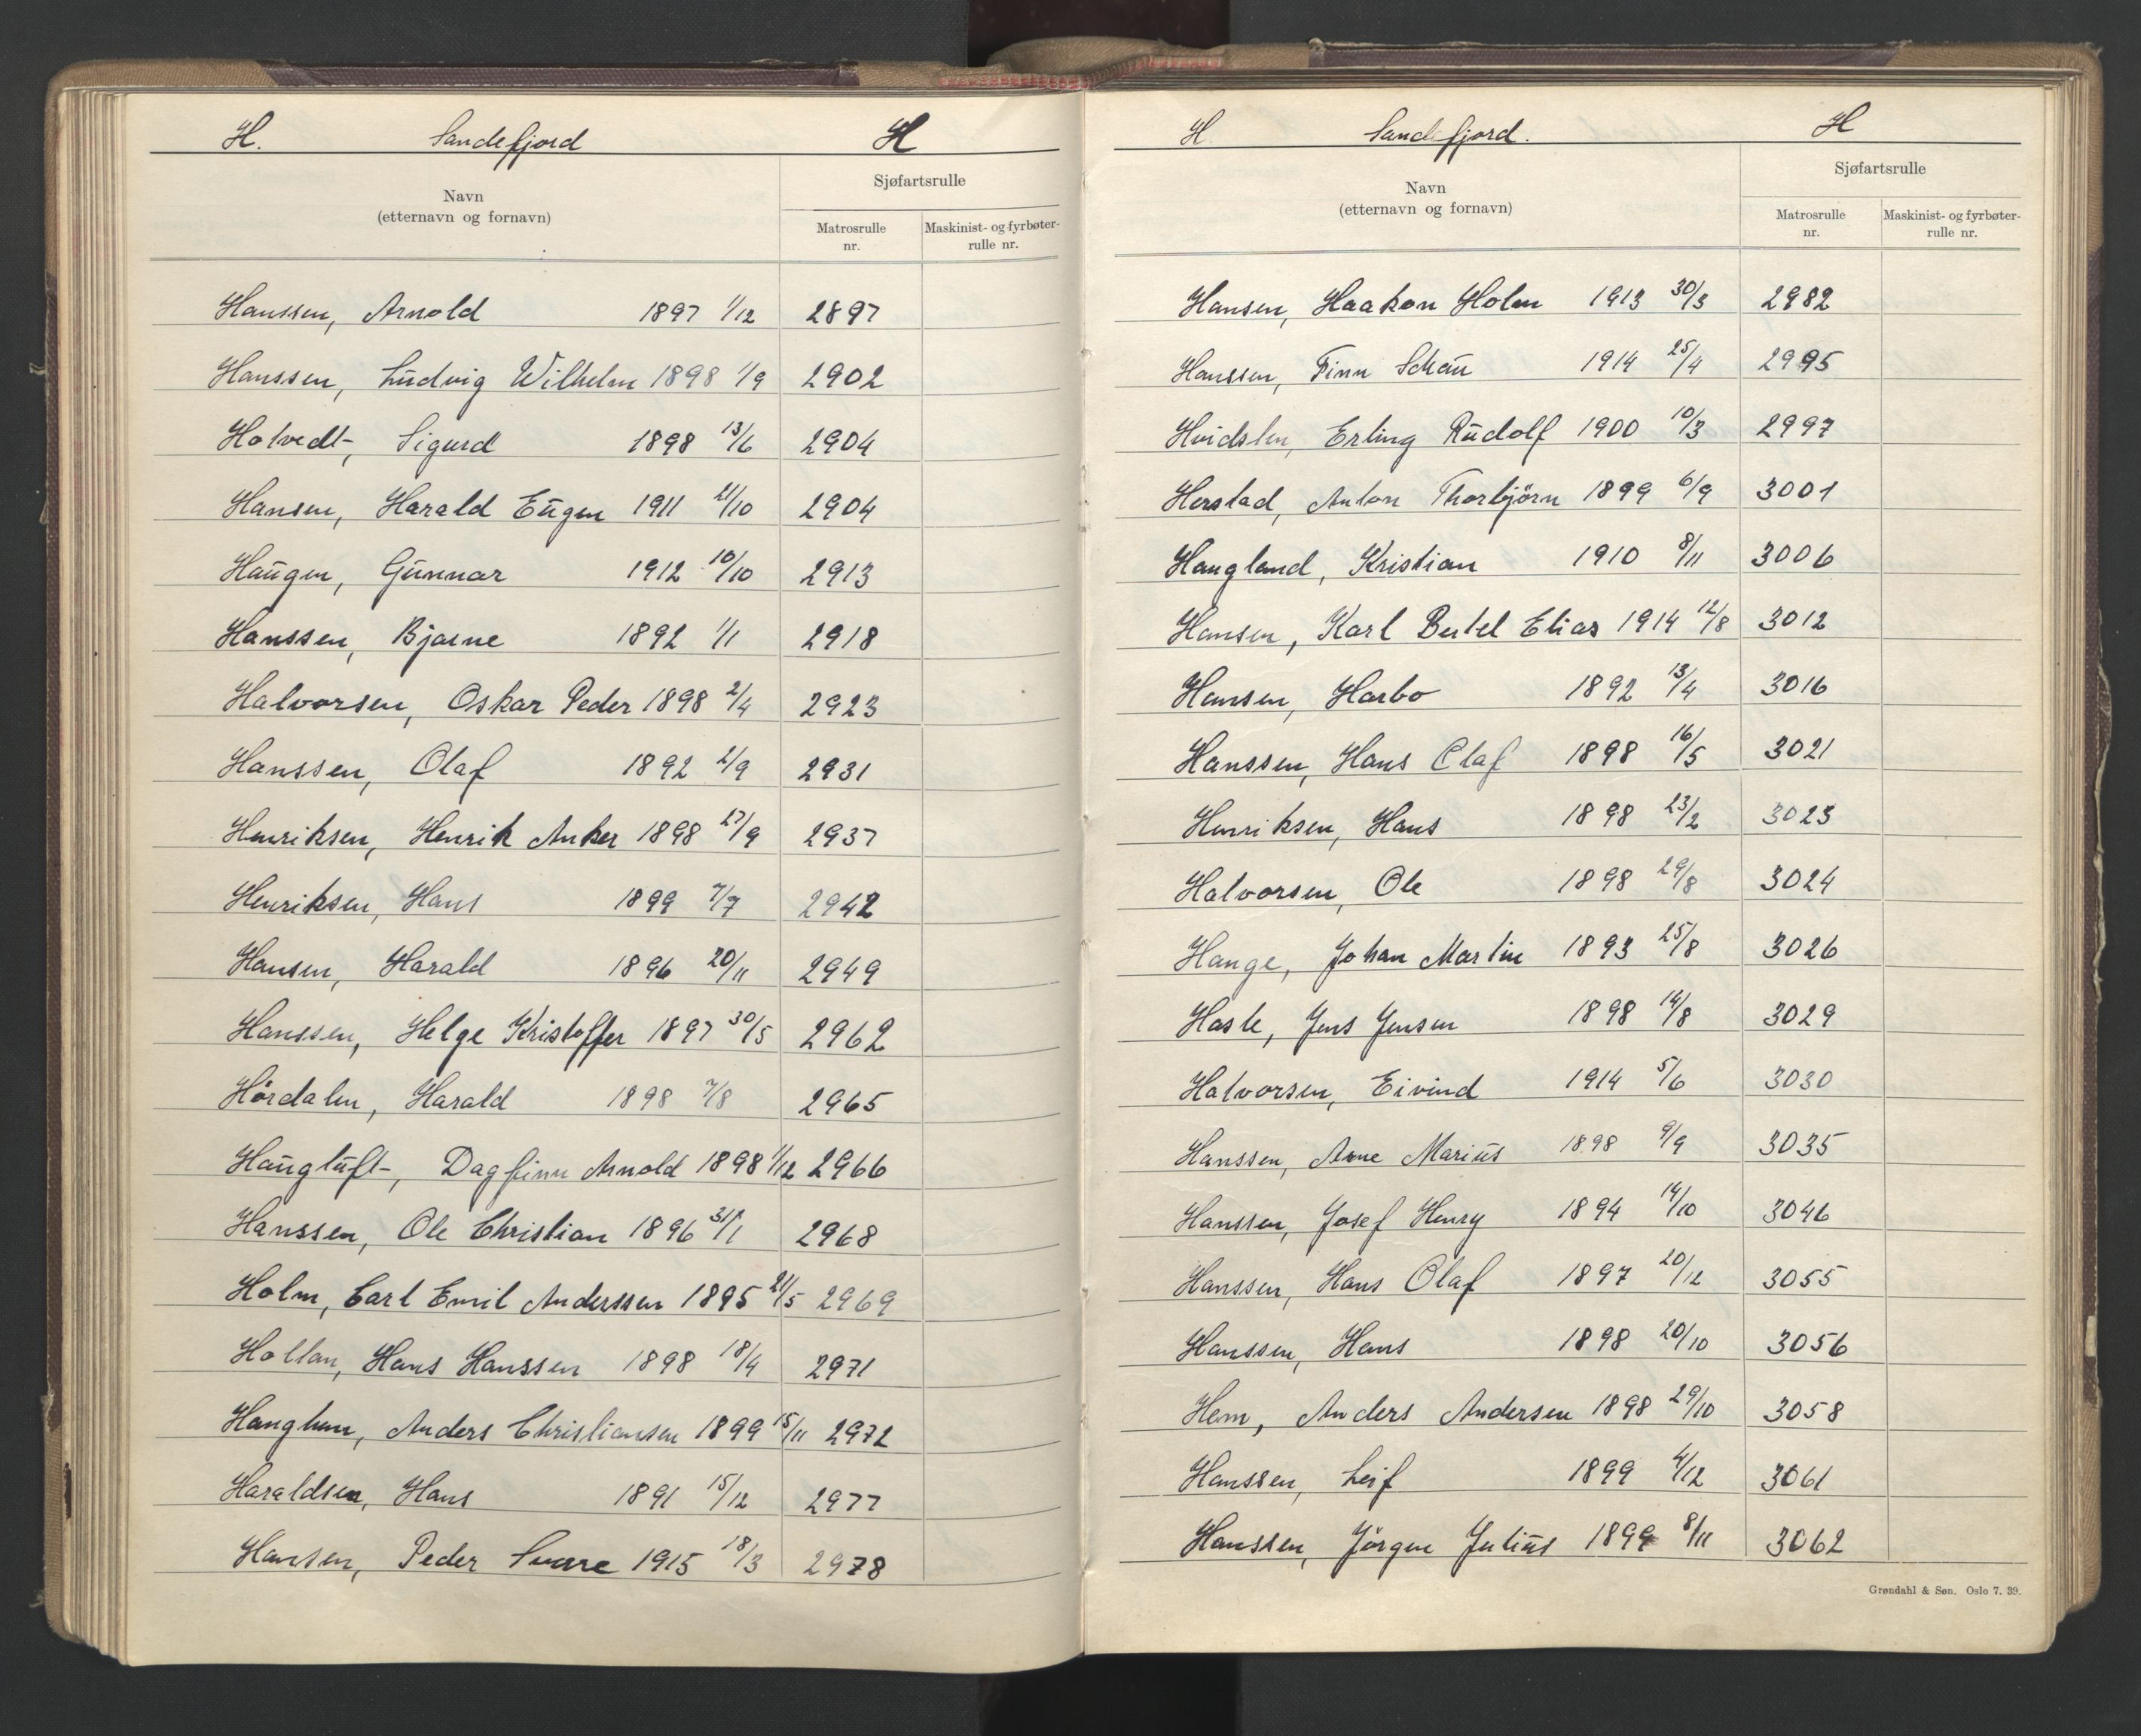 H. Sandefjord H
Navn
(etternavn og fornavn)
Sjøfartsrulle
Matrosrulle nr.
Maskinist- og fyrbøter-rulle nr.
Hanssen, Arnold 1897 1/12 2897
Hanssen, Ludvig Wilhelm 1898 1/9 2902
Hotvedt, Sigurd 1898 13/6 2904
Hansen, Harald Eugen 1911 21/10 2904
Haugen, Gunnar 1912 10/10 2913
Hanssen, Bjarne 1892 1/1 2918
Halvorsen, Oskar Peder 1898 2/4 2923
Hanssen, Olaf 1892 2/9 2931
Henriksen, Henrik Anker 1898 27/9 2937
Henriksen, Hans 1899 7/7 2942
Hansen, Harald 1896 20/11 2949
Hanssen, Helge Kristoffer 1897 30/5 2962
Hördalen, Harald 1898 7/8 2965
Haugluft, Dagfinn Arnold 1898 1/12 2966
Hanssen, Ole Christian 1896 31/1 2968
Holm, Carl Emil Anderssen 1895 21/5 2969
Hollan, Hans Hanssen 1898 18/4 2971
Anders Christiansen 1899 15/11 2972
Haraldsen, Hans 1891 15/12 2977
Hansen, Peder Sverre 1915 18/3 2978
H. Sandefjord. H
Navn
(etternavn og fornavn)
Sjøfartsrulle
Matrosrulle nr.
Maskinist- og fyrbøter-rulle nr.
Hansen, Haakon Holm 1913 30/3 2982
Hanssen, Finn Schau 1914 25/4 2995
Hvidsten, Erling Rudolf 1900 10/3 2997
Herstad, Anton Thorbjörn 1899 6/9 3001
Haugland, Kristian 1910 8/11 3006
Hansen, Karl Bertel Elias 1914 12/8 3012
Hansen, Harbo 1892 13/4 3016
Hanssen, Hans Olaf 1898 16/5 3021
Henriksen, Hans 1898 23/2 3023
Halvorsen, Ole 1898 29/8 3024
Hange, Johan Martin 1893 25/8 3026
Hasle, Jens Jensen 1898 14/8 3029
Halvorsen, Eivind 1914 5/6 3030
Hanssen, Arne Marius 1898 9/9 3035
Hanssen, Josef Henry 1894 14/10 3046
Hanssen, Hans Olaf 1897 20/12 3055
Hanssen, Hans 1898 20/10 3056
Hem, Anders Andersen 1898 29/10 3058
Hanssen, Leif 1899 4/12 3061
Hanssen, Jörgen Julius 1899 8/11 3062
Grøndahl & Søn. Oslo 7. 39.